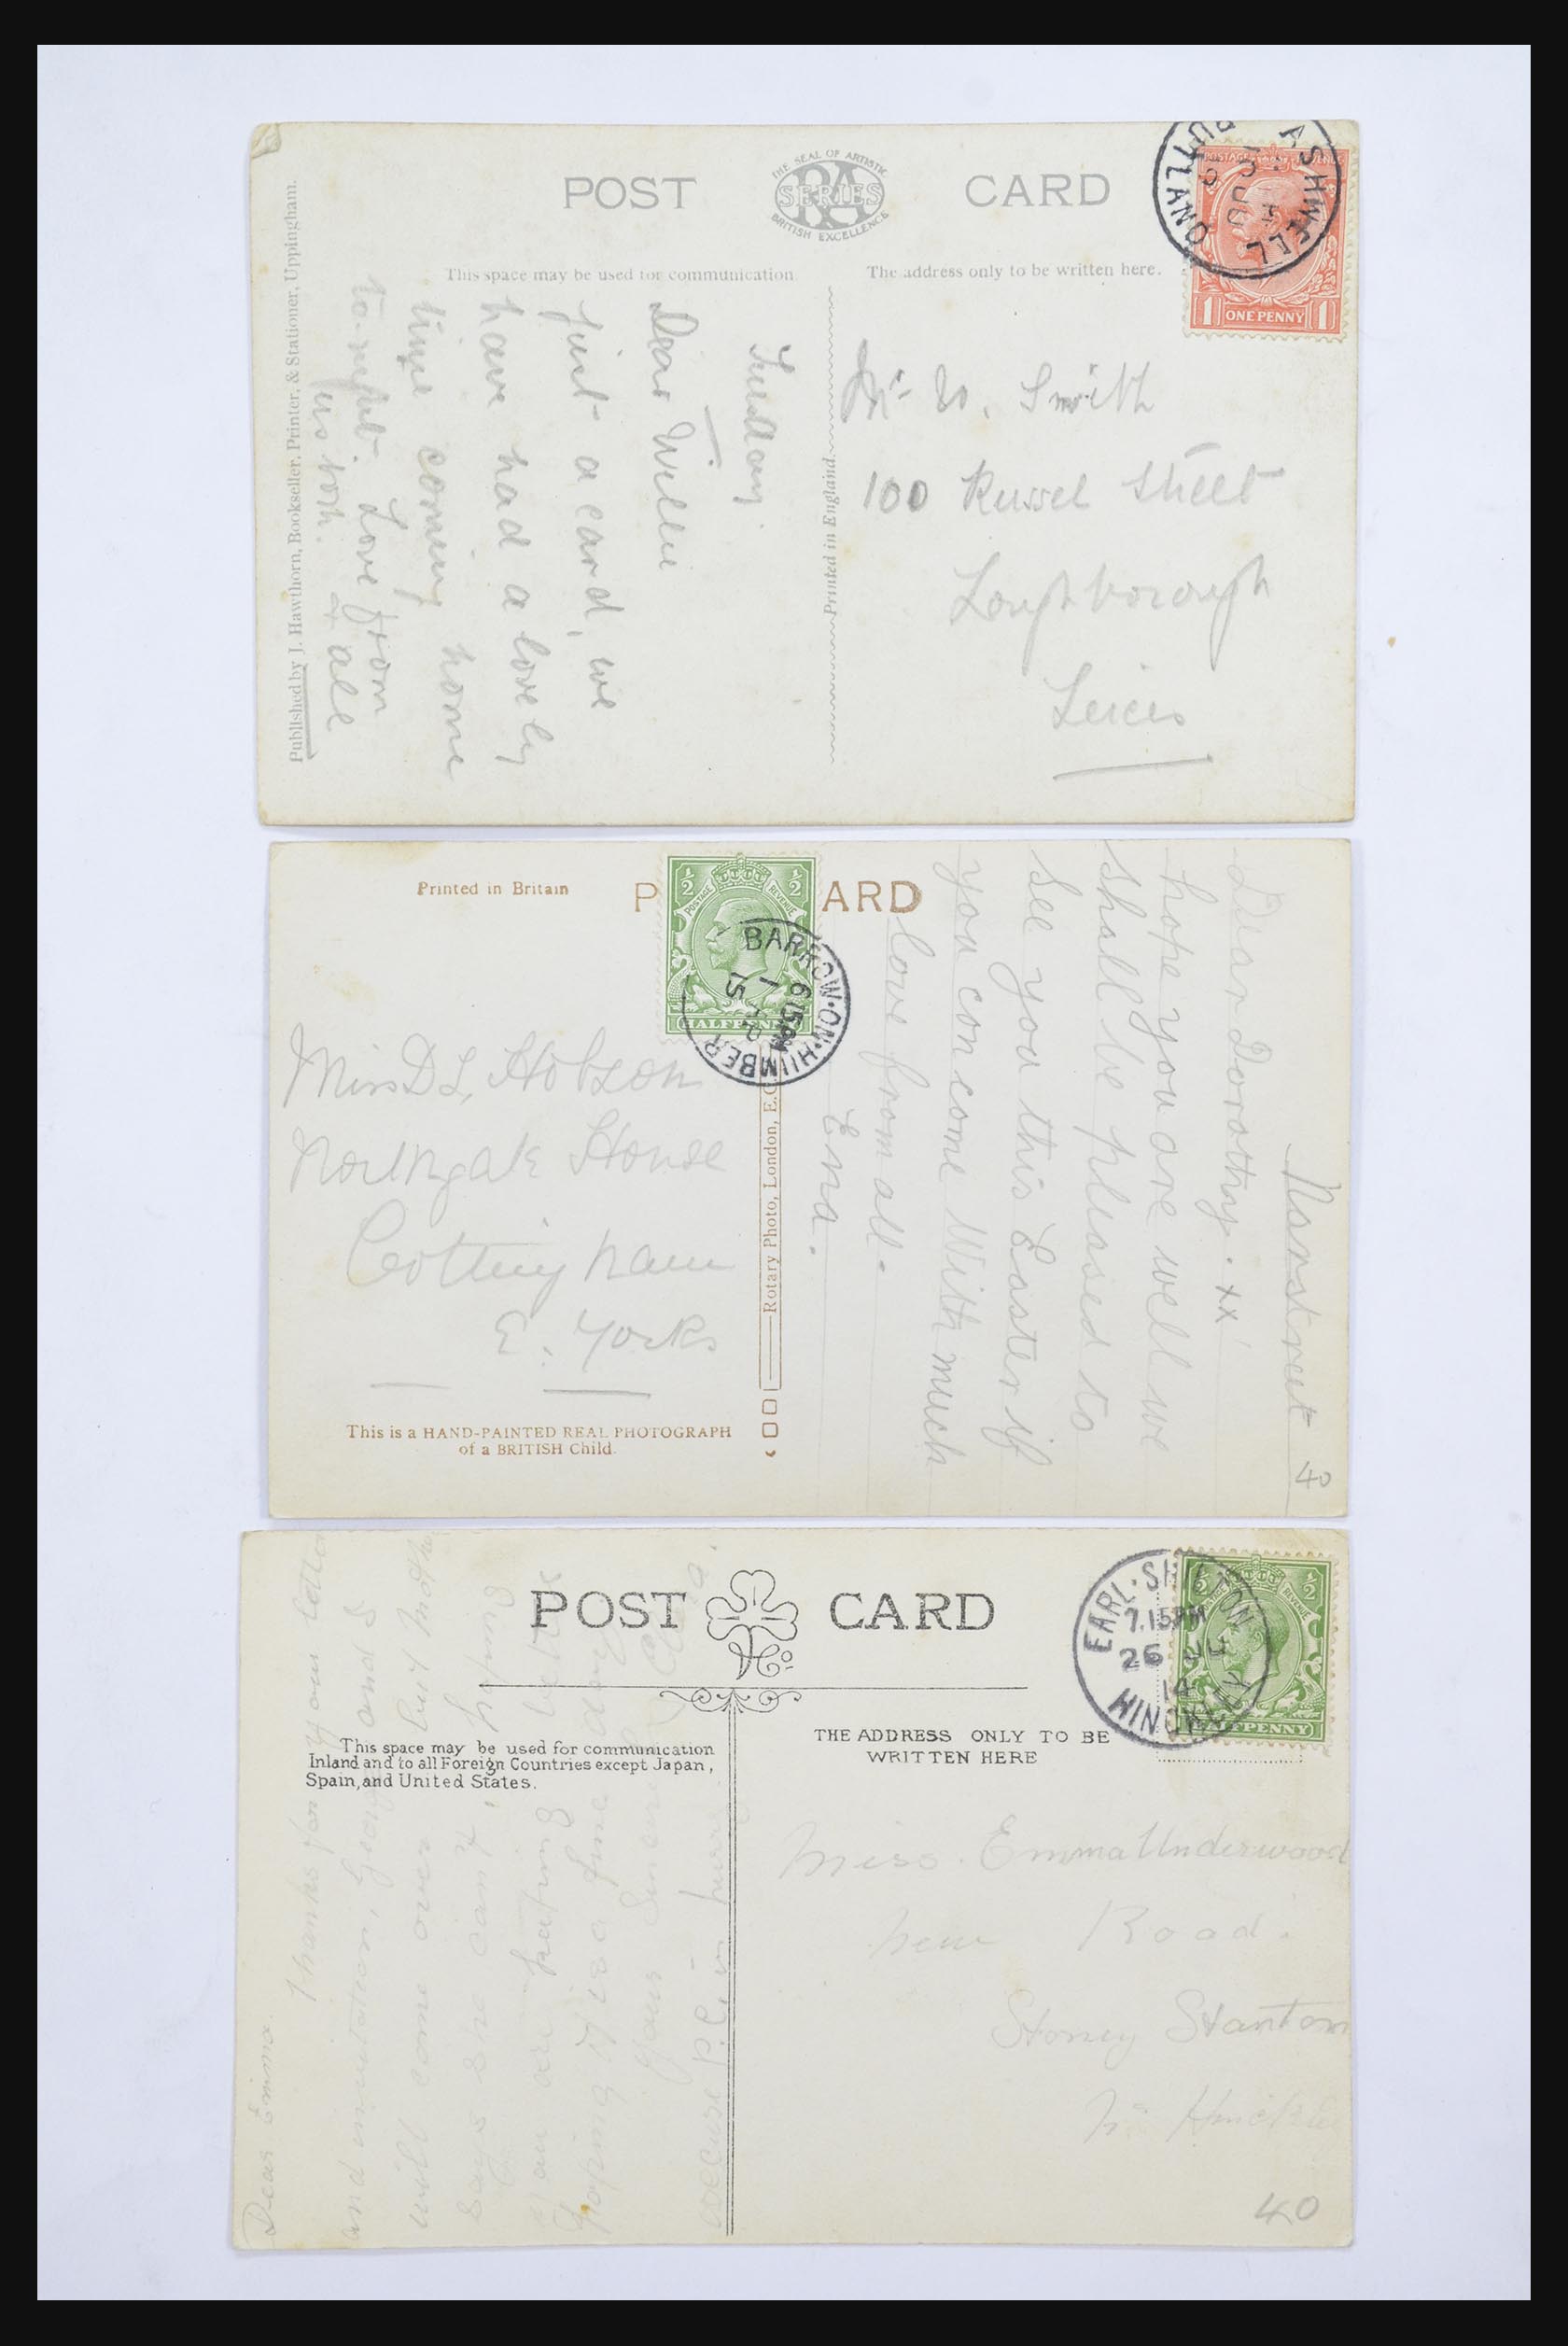 POST CARD
THE SEAL OF ARTISTIC
RA
SERIES
BRITISH EXCELLENCE
This space may be used for communication.
The address only to be written here.
ASHWELL
RUTLAND
POSTAGE REVENUE
1 ONE PENNY 1
Published by J. Hawthorn, Bookseller, Printer, & Stationer, Uppingham.
Printed in England.
Tuesday.
Dear Willie
Just a card, we
have had a lovely
time coming home
to-night. Love from
us both. & all
Mr W. Smith
100 Russel Street
Loughborough
Leices
Printed in Britain
P ARD
½ ½
POSTAGE REVENUE
HALFPENNY
BARROW-ON-HUMBER
6 15 PM
1
15
Miss D L Hobson
Northgate House
Cottingham
E. Yorks
Rotary Photo, London, E.C
This is a HAND-PAINTED REAL PHOTOGRAPH
of a BRITISH Child.
Dear Dorothy. xx
hope you are well we
shall be pleased to
see you this Easter if
you can come With much
love from all.
Ena.
40
POST CARD
This space may be used for communication
Inland and to all Foreign Countries except Japan,
Spain, and United States.
THE ADDRESS ONLY TO BE
WRITTEN HERE
EARL-SHILTON
7.15PM
26 JU
14
HINCKLEY
½ ½
REVENUE
HALFPENNY
Dear Emma.
Thanks for your letter
and invitation, George and I
will come over but Mother
says she can't, hoping
you are keeping better
hoping it is a fine day
Yours Sincerely
excuse P.C. in hurry
Miss. Emma Underwood
New Road.
Stoney Stanton
Nr Hinckley
40